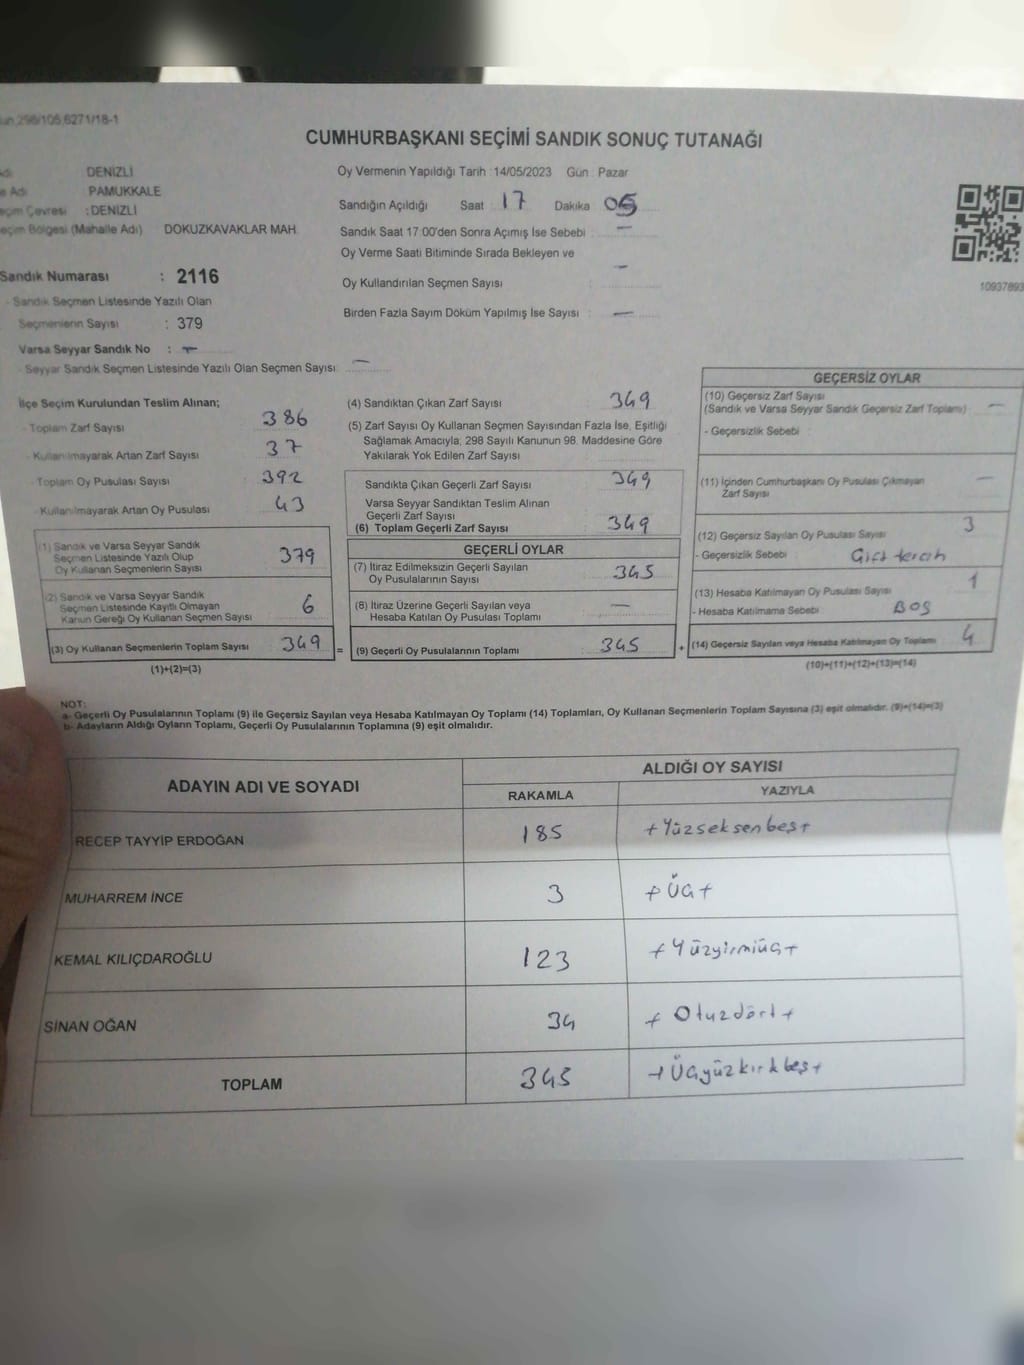 298/105,6271/18-1
CUMHURBAŞKANI SEÇİMİ SANDIK SONUÇ TUTANAĞI
DENİZLİ
Adı PAMUKKALE
Seçim Çevresi : DENİZLİ
Seçim Bölgesi (Mahalle Adı) DOKUZKAVAKLAR MAH.
Sandık Numarası : 2116
- Sandık Seçmen Listesinde Yazılı Olan
Seçmenlerin Sayısı : 379
Varsa Seyyar Sandık No : —
- Seyyar Sandık Seçmen Listesinde Yazılı Olan Seçmen Sayısı —
Oy Vermenin Yapıldığı Tarih : 14/05/2023 Gün : Pazar
Sandığın Açıldığı Saat 17 Dakika 05
Sandık Saat 17:00'den Sonra Açımış İse Sebebi : —
Oy Verme Saati Bitiminde Sırada Bekleyen ve
Oy Kullandırılan Seçmen Sayısı : —
Birden Fazla Sayım Döküm Yapılmış İse Sayısı : —
10937893
İlçe Seçim Kurulundan Teslim Alınan;
- Toplam Zarf Sayısı 386
- Kullanılmayarak Artan Zarf Sayısı 37
- Toplam Oy Pusulası Sayısı 392
- Kullanılmayarak Artan Oy Pusulası 43
(1) Sandık ve Varsa Seyyar Sandık
Seçmen Listesinde Yazılı Olup
Oy Kullanan Seçmenlerin Sayısı 379
(2) Sandık ve Varsa Seyyar Sandık
Seçmen Listesinde Kayıtlı Olmayan
Kanun Gereği Oy Kullanan Seçmen Sayısı 6
(3) Oy Kullanan Seçmenlerin Toplam Sayısı 349
(1)+(2)=(3)
(4) Sandıktan Çıkan Zarf Sayısı 349
(5) Zarf Sayısı Oy Kullanan Seçmen Sayısından Fazla İse, Eşitliği
Sağlamak Amacıyla; 298 Sayılı Kanunun 98. Maddesine Göre
Yakılarak Yok Edilen Zarf Sayısı
Sandıkta Çıkan Geçerli Zarf Sayısı 349
Varsa Seyyar Sandıktan Teslim Alınan
Geçerli Zarf Sayısı
(6) Toplam Geçerli Zarf Sayısı 349
GEÇERLİ OYLAR
(7) İtiraz Edilmeksizin Geçerli Sayılan
Oy Pusulalarının Sayısı : 345
(8) İtiraz Üzerine Geçerli Sayılan veya
Hesaba Katılan Oy Pusulası Toplamı : —
= (9) Geçerli Oy Pusulalarının Toplamı : 345
GEÇERSİZ OYLAR
(10) Geçersiz Zarf Sayısı
(Sandık ve Varsa Seyyar Sandık Geçersiz Zarf Toplamı) —
- Geçersizlik Sebebi
(11) İçinden Cumhurbaşkanı Oy Pusulası Çıkmayan
Zarf Sayısı —
(12) Geçersiz Sayılan Oy Pusulası Sayısı 3
- Geçersizlik Sebebi Çift tercih
(13) Hesaba Katılmayan Oy Pusulası Sayısı 1
- Hesaba Katılmama Sebebi BOŞ
+ (14) Geçersiz Sayılan veya Hesaba Katılmayan Oy Toplamı 4
(10)+(11)+(12)+(13)=(14)
NOT:
a- Geçerli Oy Pusulalarının Toplamı (9) ile Geçersiz Sayılan veya Hesaba Katılmayan Oy Toplamı (14) Toplamları, Oy Kullanan Seçmenlerin Toplam Sayısına (3) eşit olmalıdır. (9)+(14)=(3)
b- Adayların Aldığı Oyların Toplamı, Geçerli Oy Pusulalarının Toplamına (9) eşit olmalıdır.
ADAYIN ADI VE SOYADI ALDIĞI OY SAYISI
RAKAMLA YAZIYLA
RECEP TAYYİP ERDOĞAN 185 +Yüzseksenbeş+
MUHARREM İNCE 3 +Üç+
KEMAL KILIÇDAROĞLU 123 +Yüzyirmiüç+
SİNAN OĞAN 34 + Otuzdört+
TOPLAM 345 +Üçyüzkırkbeş+